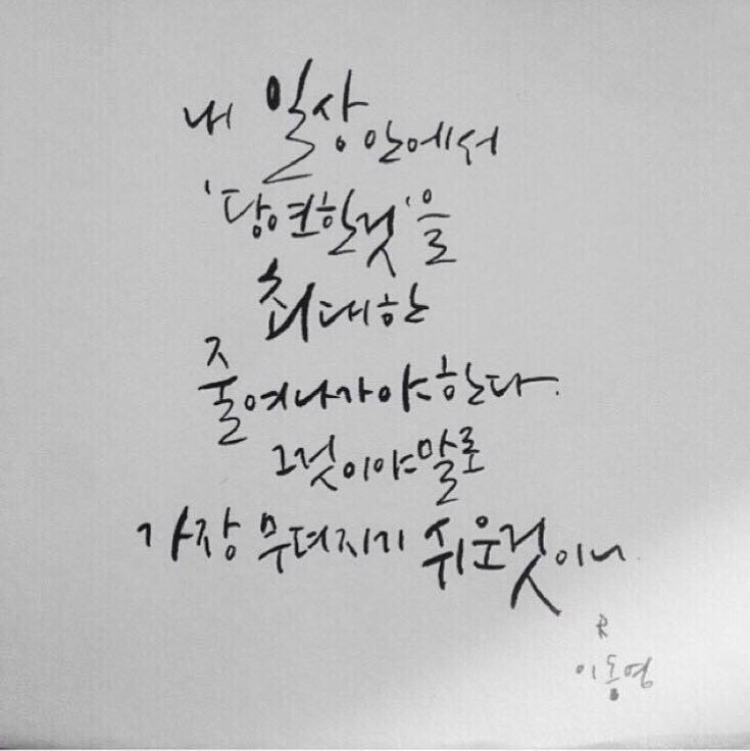 내 일상 안에서
'당연한것'을
최대한
줄여나가야한다.
그것이야말로
가장 무뎌지기 쉬운것이니
이동영